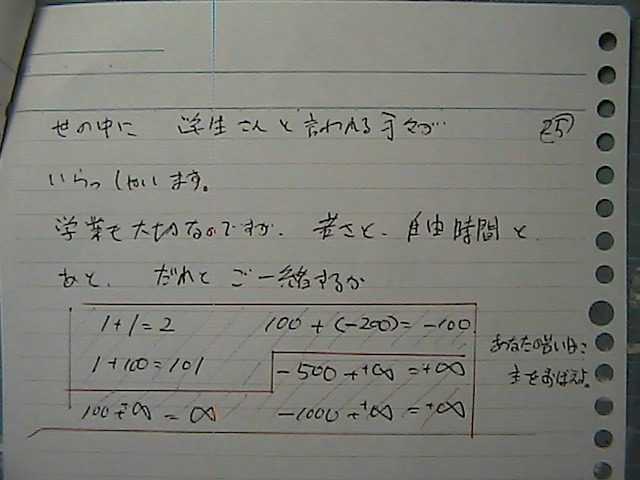 世の中に 学生さんと言われる方々が… 25
いらっしゃいます。
学業も大切なのですが、若さと、自由時間と、
あと、だれとご一緒するか
1+1=2 100+(-200)=-100
1+100=101 -500++∞=+∞
100++∞=∞ -1000++∞=+∞
あなたの若い日に
主をおぼえよ。